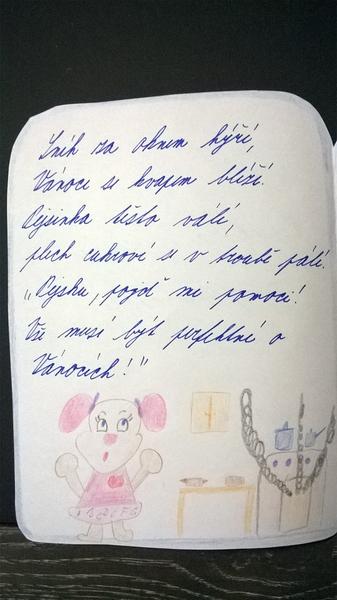 Sníh za oknem hýří,
Vánoce se kvapem blíží.
Pejsinka těsto válí,
plech cukroví se v troubě pálí.
"Pejsku, pojď mi pomoci!
Vše musí být perfektní o
Vánocích!"